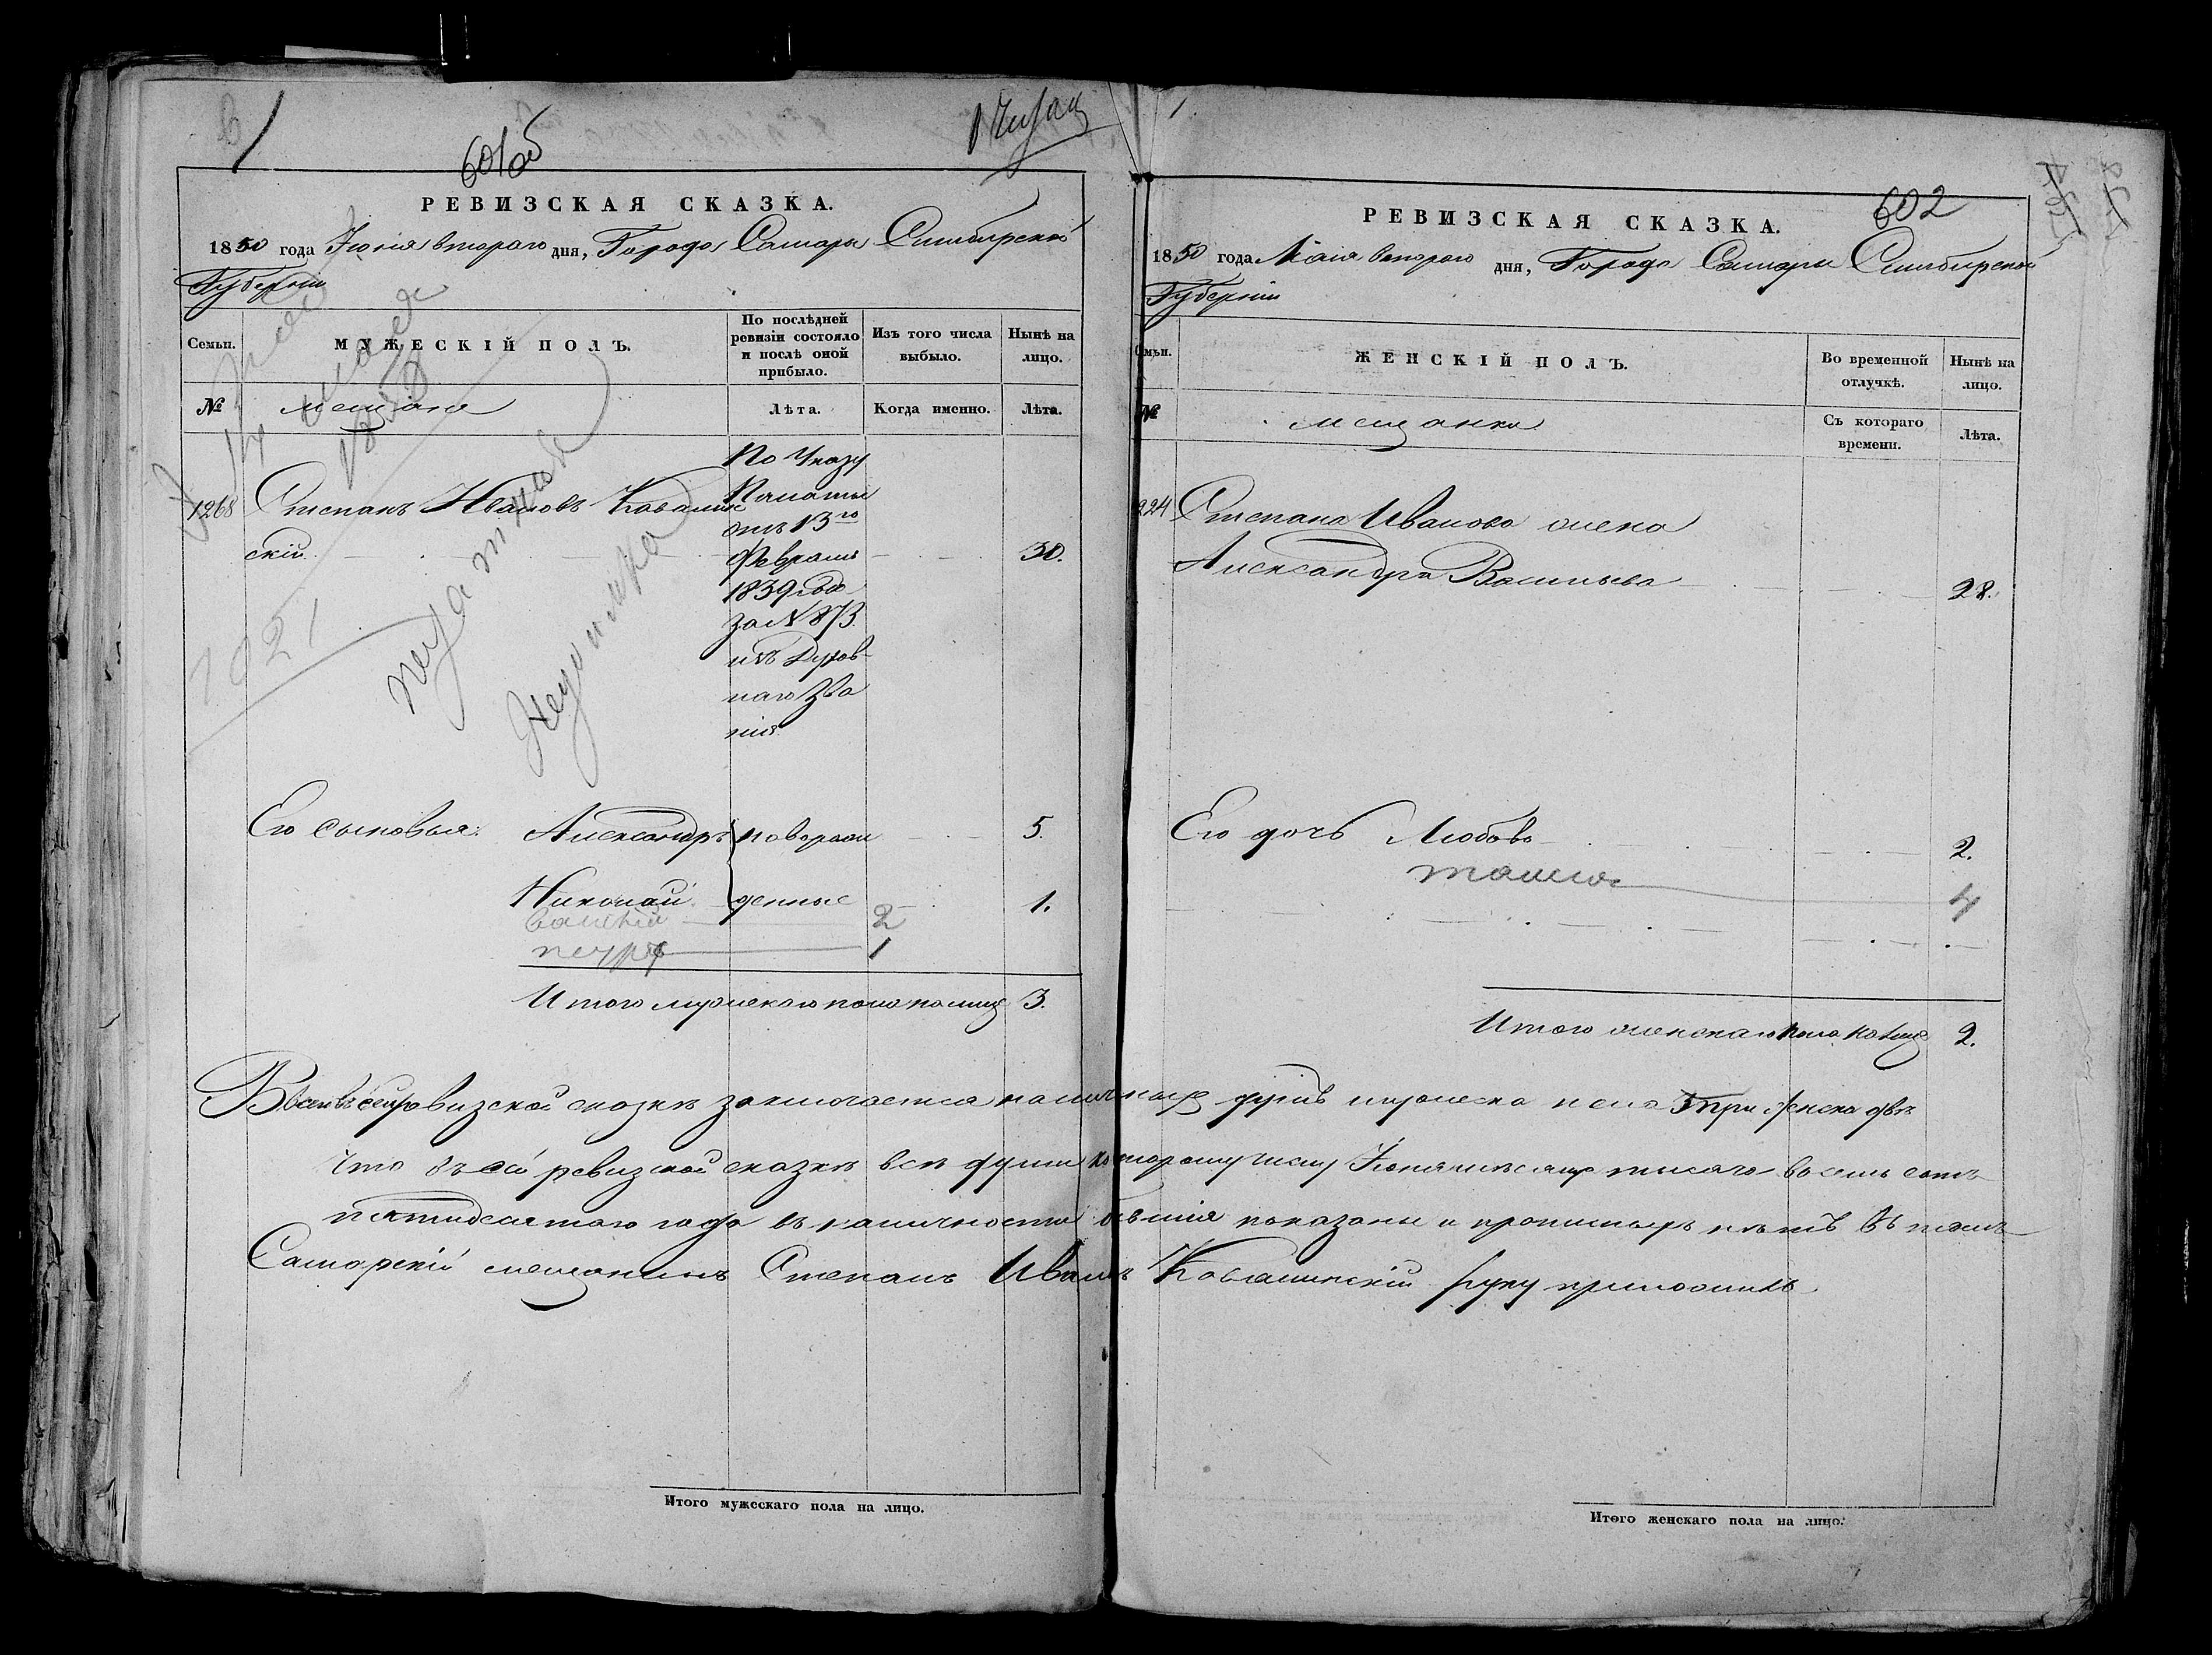 1
601об
РЕВИЗСКАЯ СКАЗКА.
1850 года Іюня втораго дня, Города Самары Симбирской
Губерніи
Семьи.
МУЖЕСКІЙ ПОЛЪ.
По послѣдней ревизіи состояло и послѣ оной прибыло.
Изъ того числа выбыло.
Нынѣ на лицо.
№
мещане
Лѣта.
Когда именно.
Лѣта.
1268
Степанъ Ивановъ Ковалин
скій
30.
По Указу
Палаты
отъ 13го
Февраля
1839 года
за № 873.
изъ Духов-
наго зва
нія
1021
Недоимка
Его сыновья: Александръ
новорож
5.
Николай
денные
1.
Василій
2
Петръ
1
Итого мужескаго пола на лицо 3.
602
РЕВИЗСКАЯ СКАЗКА.
1850 года Маія втораго дня, Города Самары Симбирской
Губерніи
Семьи.
ЖЕНСКІЙ ПОЛЪ.
Во временной отлучкѣ.
Нынѣ на лицо.
№
мещанки
Съ котораго времени.
Лѣта.
Степана Иванова жена
Александра Васильева
28.
Его дочь Любовь
2.
4
Итого женскаго пола на лицо 2.
ревизской сказкѣ заключается наличныхъ душъ мужеска пола три женска двѣ
Что въ сей ревизской сказкѣ всѣ души ко второму числу Іюня мѣсяца тысяча восемь сотъ
пятидесятаго года въ наличности бывшія показаны и прописныхъ нѣтъ въ томъ
Самарскій мещанинъ Степанъ Иванъ Ковалинскій руку приложилъ.
Итого мужескаго пола на лицо.
Итого женскаго пола на лицо.